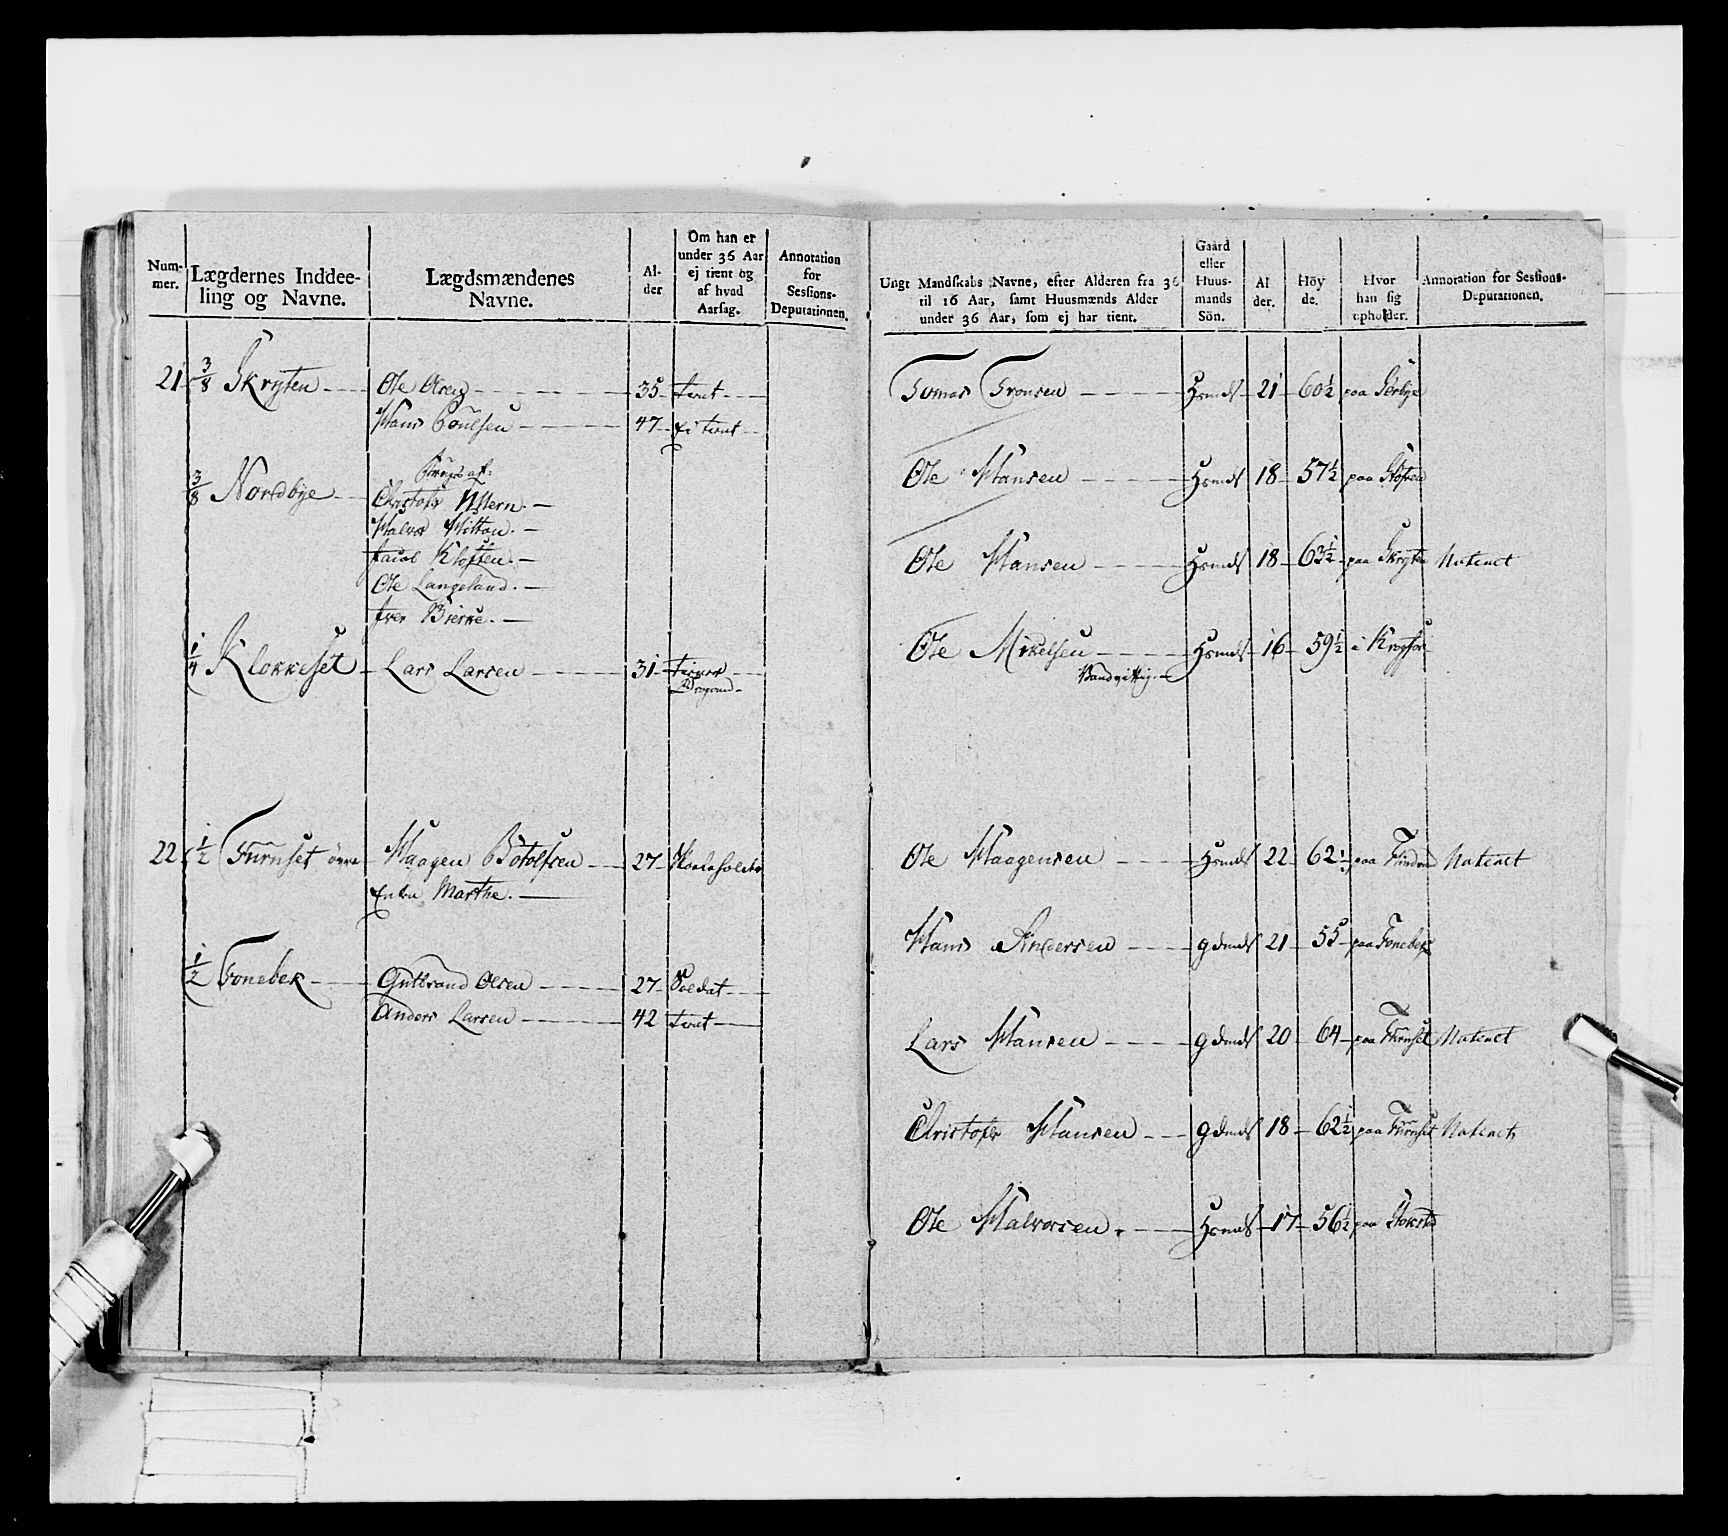 Num-
mer.
Lægdernes Inddee-
ling og Navne.
Lægdsmændenes
Navne.
Al-
der
Om han er
under 36 Aar
ej tient og
af hvad
Aarsag.
Annotation
for
Sessions-
Deputationen.
21 3/8 Skryten Ole Olsen 35 tient
Hans Poulsen 47 Ei tient
3/8 Nordbye
Christofr
Halvor Hitton.
Jacob Kloften.
Ole Langeland.
Iver Bierke.
1/4 Klokkeset Lars Larsen 31
Dragoun
22 1/2 Furuset øvre Haagen Botolfsen 27
Enken Marthe.
1/2 Tonebek Gulbrand Olsen 27 Soldat
Anders Larsen 42 tient
Ungt Mandskabs Navne, efter Alderen fra 36
til 16 Aar, samt Huusmænds Alder
under 36 Aar, som ej har tient.
Gaard
eller
Huus-
mands
Sön.
Al
der.
Höy
de.
Hvor
han sig
opholder.
Annotation for Sessions-
Deputationen.
Tomas Tronsen Hsmds 21 60 1/2 paa
Ole Hansen Hsmds 18 57 1/2 paa Kloften
Ole Hansen Hsmds 18 63 1/2 paa Skryten Noteret
Ole Mikelsen Hsmds 16 59 1/2 i
Vandvittig.
Ole Haagensen Hsmds 22 62 paa Noteret
Hans Andersen gdmds 21 55 paa Tonebek
Lars Hansen gdmds 20 64 paa Furuset Noteret
Christofer Hansen gdmds 18 62 1/2 paa Furuset Noteret
Ole Halvorsen. Hsmds 17 56 1/2 paa